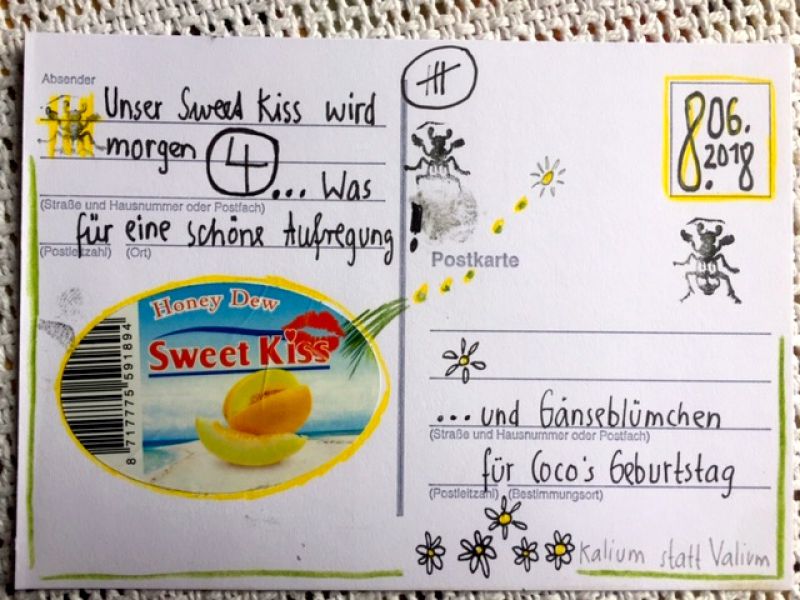 Absender
Unser Sweet Kiss wird
morgen 4 ... Was
(Straße und Hausnummer oder Postfach)
für eine schöne Aufregung!
(Postleitzahl) (Ort)
Honey Dew
Sweet Kiss
8 717775 591894
8.06.
2018
Postkarte
...und Gänseblümchen
(Straße und Hausnummer oder Postfach)
für Coco's Geburtstag
(Postleitzahl) (Bestimmungsort)
Kalium statt Valium